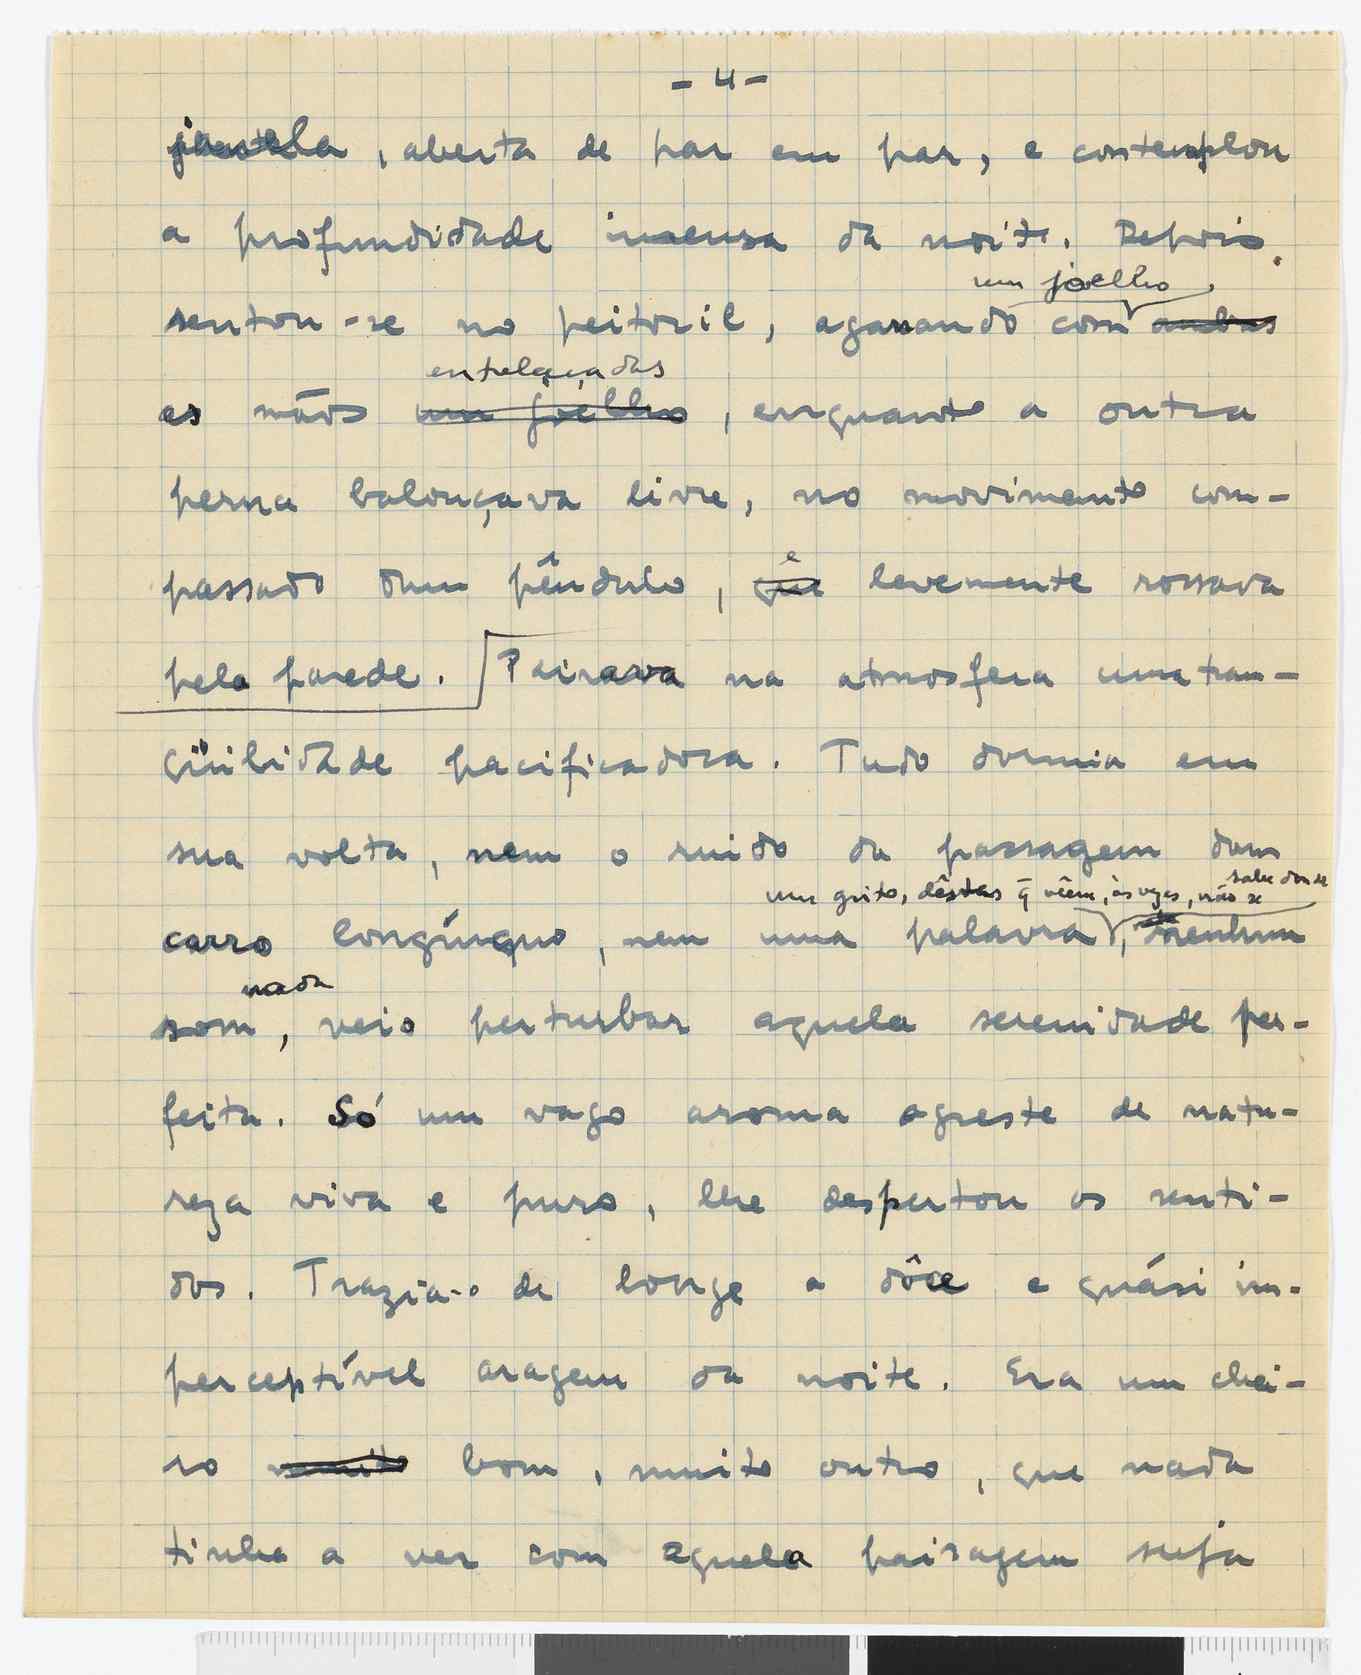 - 4 -
janela, aberta de par em par, e contemplou
a profundidade imensa da noite. Depois,
um joelho,
sentou-se no peitoril, agarrando com ambas
entrelaçadas
as mãos um joelho, enquanto a outra
perna balonçava livre, no movimento com-
e
passado dum pêndulo, que levemente rossava
pela parede. Pairava na atmosfera uma tran-
qüilidade pacificadora. Tudo dormia em
sua volta, nem o ruido da passagem dum
sabe donde
um grito, dêstes q̃ vêem, às vezes, não se
carro longínquo, nem uma palavra, nenhum
nada
som, veio perturbar aquela serenidade per-
feita. Só um vago aroma agreste de natu-
reza viva e pura, lhe despertou os senti-
dos. Trazia-o de longe a dôce e quási im-
perceptível aragem da noite. Era um chei-
ro muito bom, muito outro, que nada
tinha a ver com aquela paisagem suja